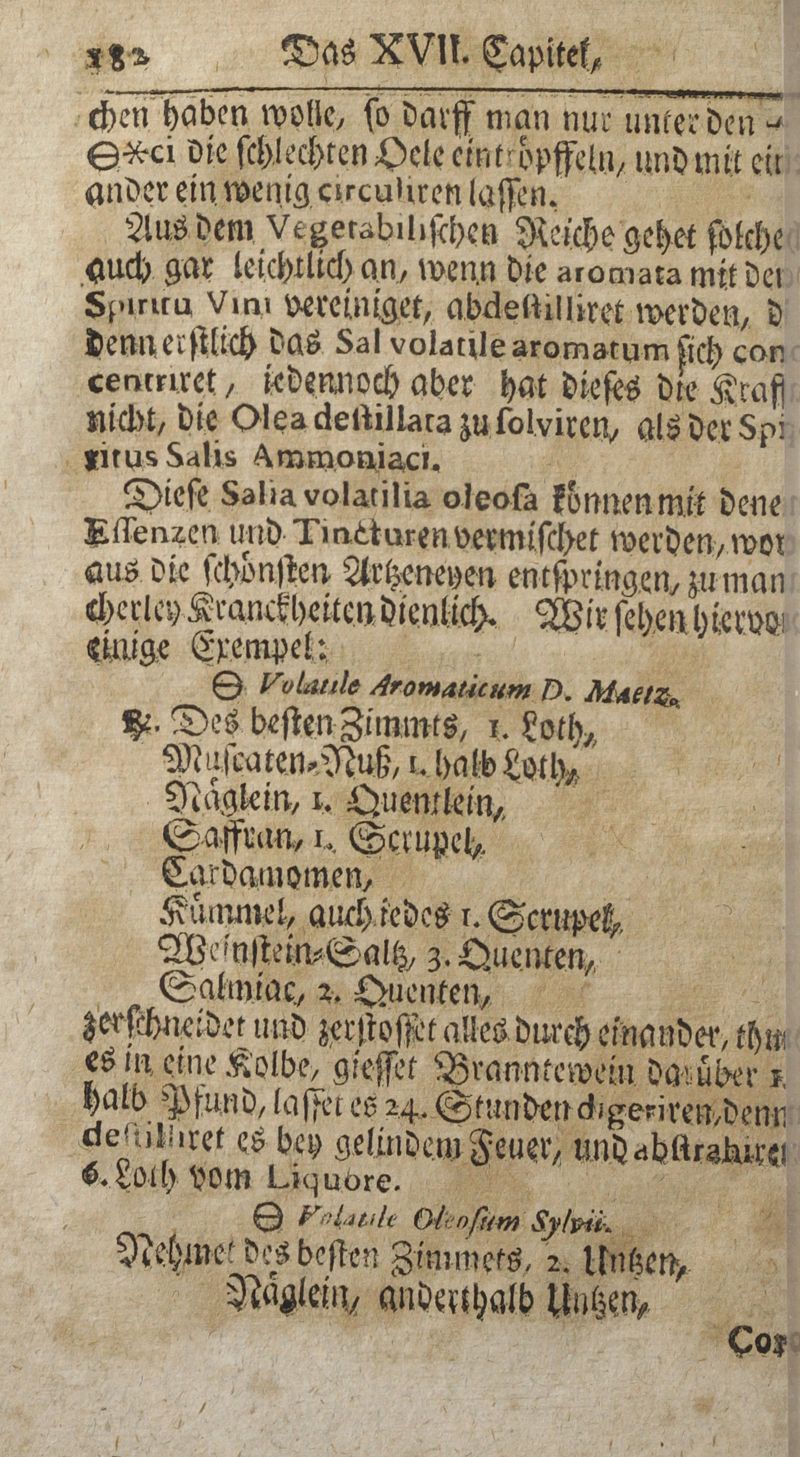 182 Das XVII. Capitel,
chen haben wolle, so darff man nur unter den
🜔✶ci die schlechten Oele eintröpffeln, und mit ein
ander ein wenig circuliren lassen.
Aus dem Vegetabilischen Reiche gehet solche
auch gar leichtlich an, wenn die aromata mit dem
Spiritu Vini vereiniget, abdestilliret werden, d
denn erstlich das Sal volatile aromatum sich con
centriret, iedennoch aber hat dieses die Krafft
nicht, die Olea destillata zu solviren, als der Spi
ritus Salis Ammoniaci.
Diese Salia volatilia oleosa können mit dene
Essenzen und Tincturen vermischet werden, wor
aus die schönsten Artzeneyen entspringen, zu man
cherley Kranckheiten dienlich. Wir sehen hiervo
einige Exempel:
🜔 Volatile Aromaticum D. Maetz.
℞. Des besten Zimmts, 1. Loth,
Muscaten-Nuß, 1. halb Loth,
Näglein, 1. Quentlein,
Saffran, 1. Scrupel,
Cardamomen,
Kümmel, auch iedes 1. Scrupel,
Weinstein-Saltz, 3. Quenten,
Salmiac, 2. Quenten,
zerschneidet und zerstosset alles durch einander, thut
es in eine Kolbe, giesset Branntewein darüber 1.
halb Pfund, lasset es 24. Stunden digeriren, denn
destilliret es bey gelindem Feuer, und abstrahiret
6. Loth vom Liquore.
🜔 Volatile Oleosum Sylvii.
Nehmet des besten Zimmets, 2. Untzen,
Näglein, anderthalb Untzen,
Cor